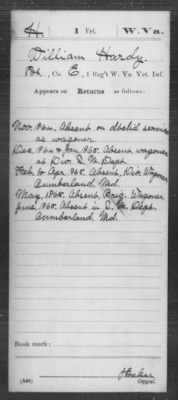 H | 1 Vet. | W. Va.
William Hardy
Pvt., Co. E, 1 Reg't W. Va. Vet. Inf.
Appears on Returns as follows:
Nov. 1864. Absent on detached service
as wagoner.
Dec. 1864 & Jan. 1865. Absent, wagoner
at Div. Q. M. Dept.
Feb. to Apr. 1865. Absent, Div. Wagoner
Cumberland, Md.
May, 1865. Absent, Brig. Wagoner
June 1865. Absent in Q. M. Dept.
Cumberland, Md.
Book mark:
(546)
Baker
Copyist.